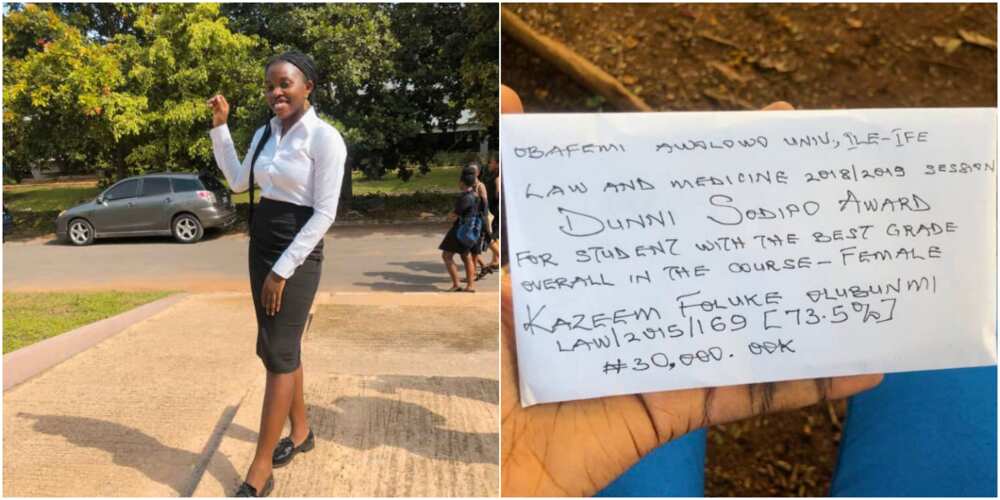 OBAFEMI AWOLOWO UNIV., ILE-IFE
LAW AND MEDICINE 2018/2019 SESSION
DUNNI SODIPO AWARD
FOR STUDENT WITH THE BEST GRADE
OVERALL IN THE COURSE - FEMALE
KAZEEM FOLUKE OLUBUNMI
LAW/2015/169 [73.5%]
₦30,000.00K